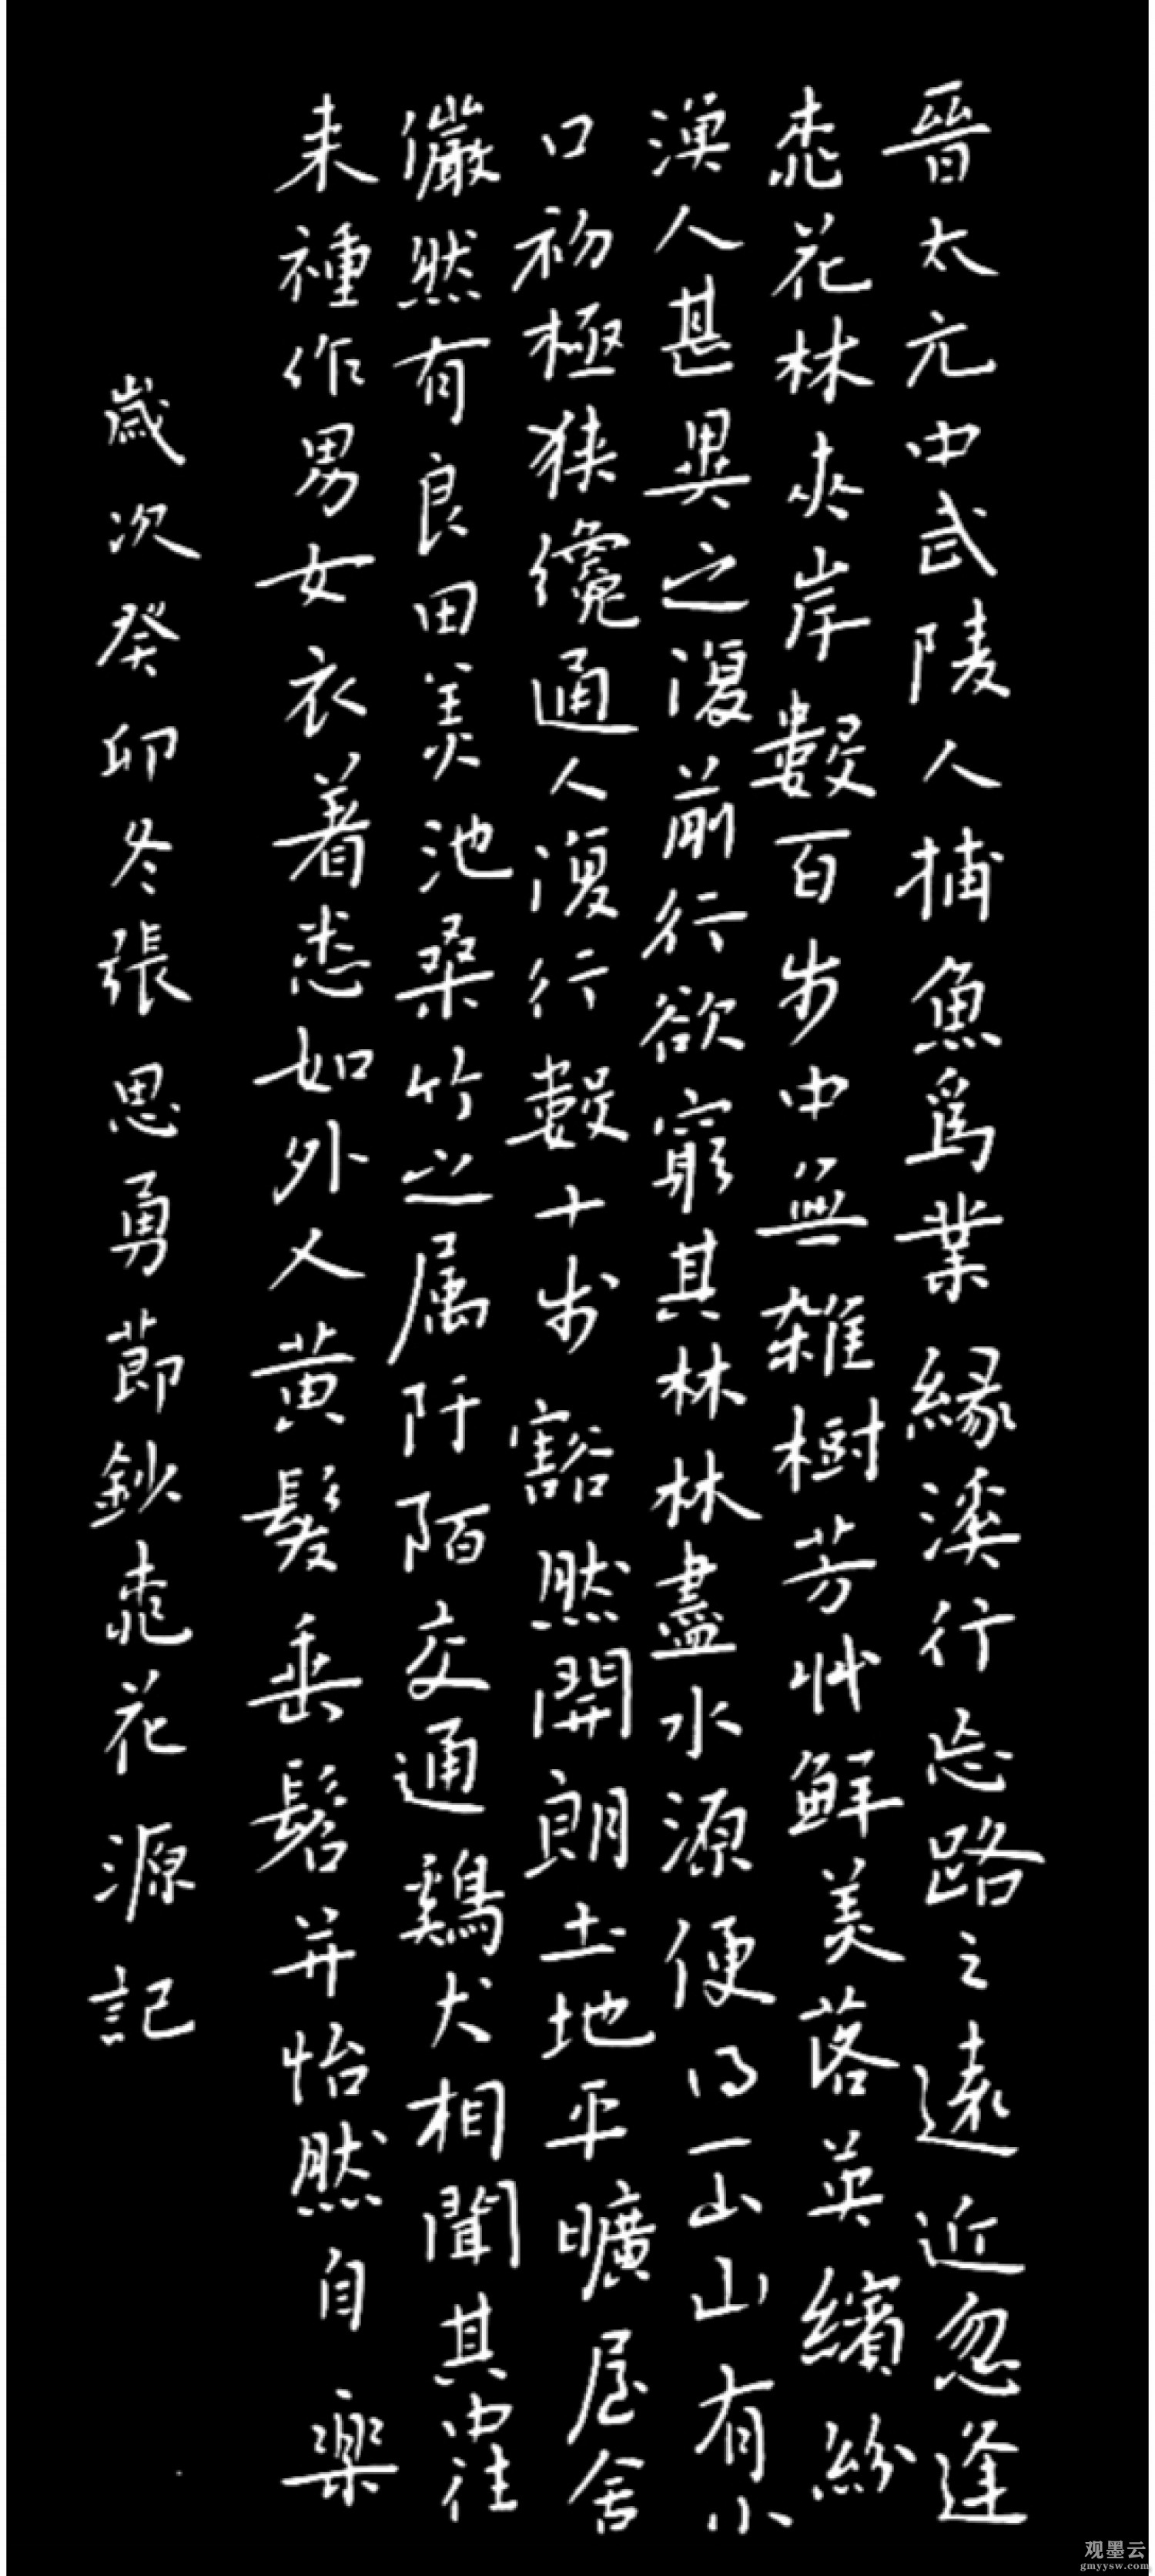 晉太元中武陵人捕魚爲業緣溪行忘路之遠近忽逢
桃花林夾岸數百步中無雜樹芳艸鮮美落英繽紛
漁人甚異之復前行欲窮其林林盡水源便得一山山有小
口初極狹纔通人復行數十步豁然開朗土地平曠屋舍
儼然有良田美池桑竹之属阡陌交通鷄犬相聞其中往
来種作男女衣着悉如外人黄髮垂髫并怡然自樂
歲次癸卯冬張思勇節鈔桃花源記
观墨云
gmyysw.com